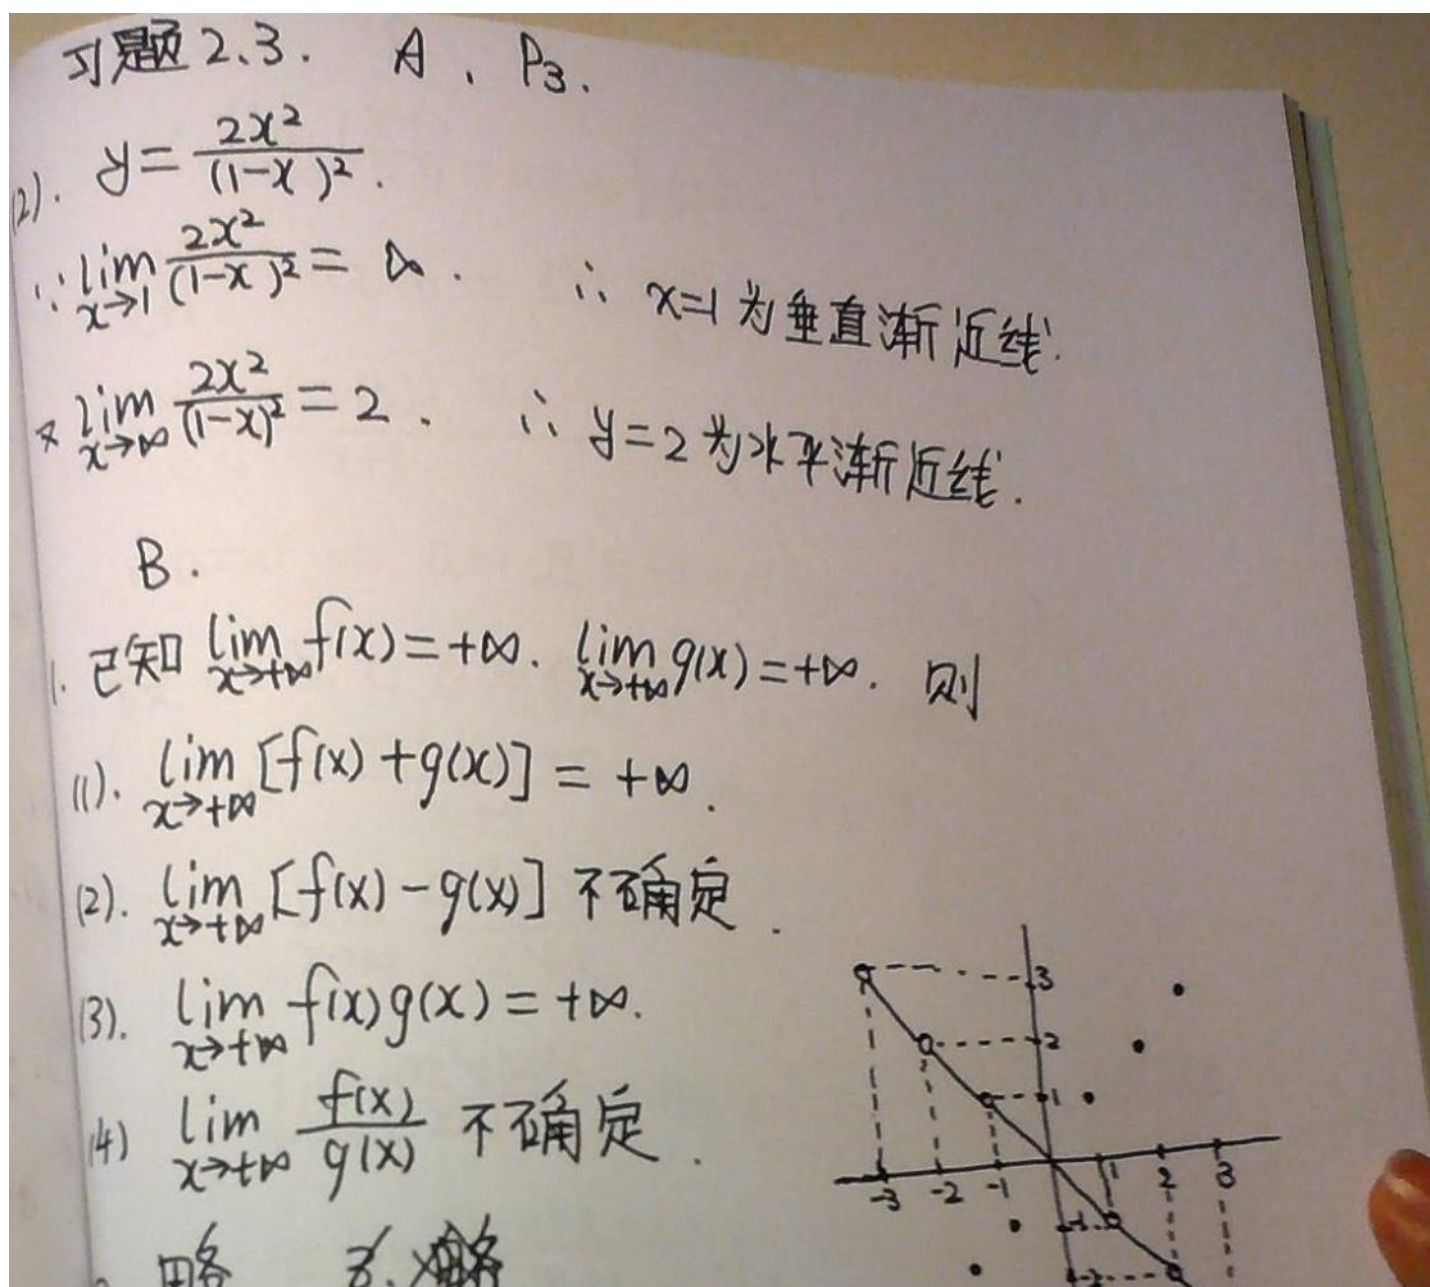 习题 2.3. A. P3.
(2). y = 2x²/(1-x)².
∵ lim x→1 2x²/(1-x)² = ∞. ∴ x=1 为垂直渐近线.
又 lim x→∞ 2x²/(1-x)² = 2. ∴ y=2 为水平渐近线.
B.
1. 已知 lim x→+∞ f(x) = +∞. lim x→+∞ g(x) = +∞. 则
(1). lim x→+∞ [f(x)+g(x)] = +∞.
(2). lim x→+∞ [f(x)-g(x)] 不确定.
(3). lim x→+∞ f(x)g(x) = +∞.
(4) lim x→+∞ f(x)/g(x) 不确定.
3
2
1
-3 -2 -1 2 3
-1
-2
略